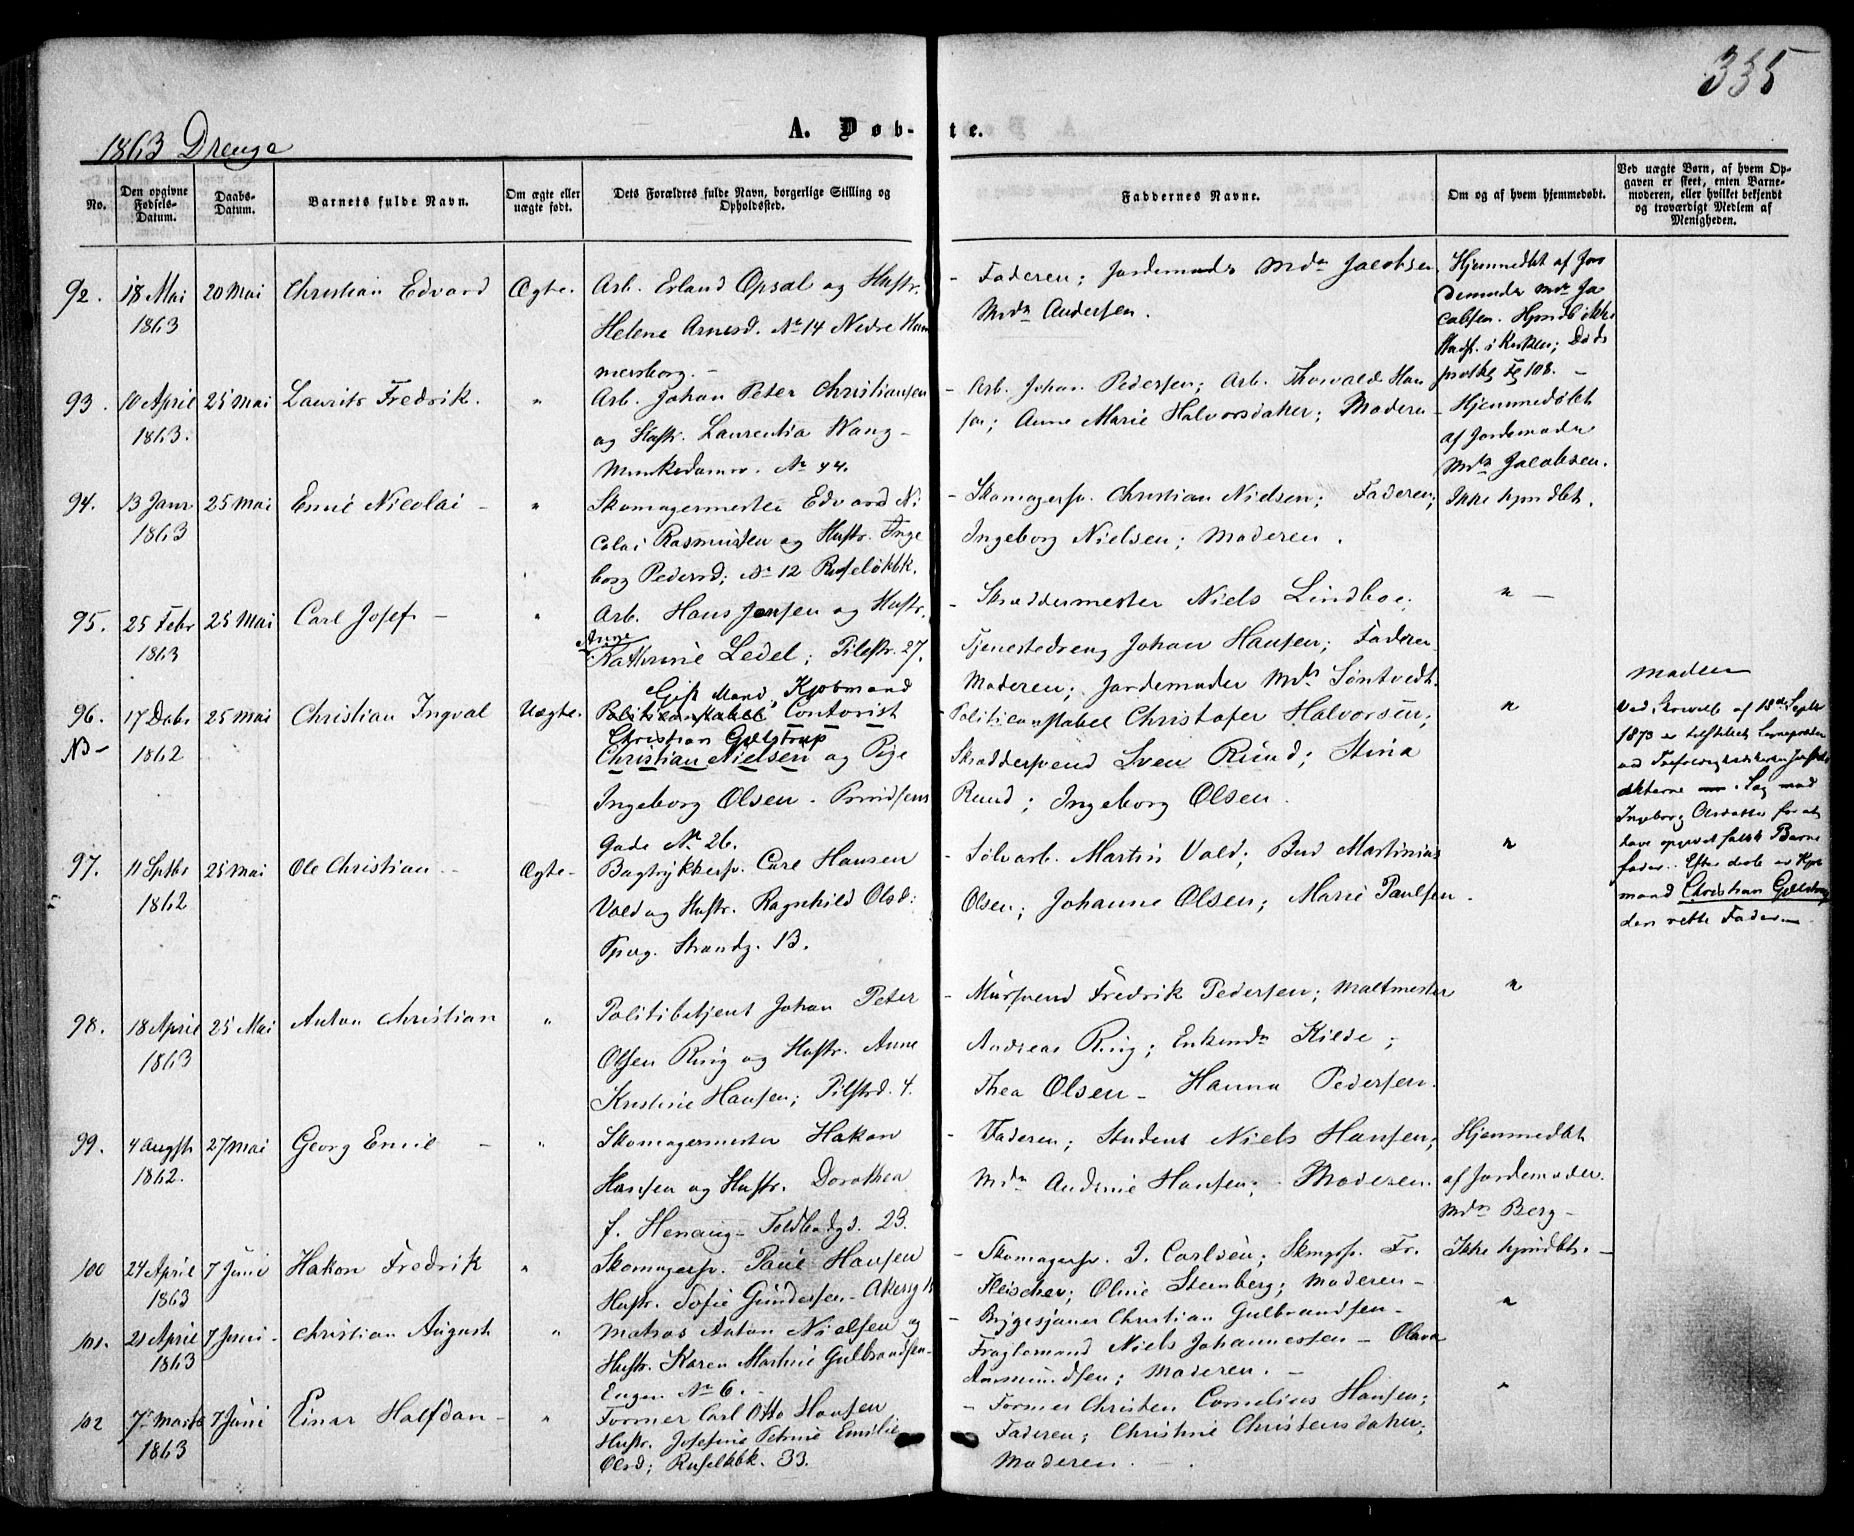 335
1863 Drenge
A. Døb-te.
No.
Den opgivne Fødsels-Datum.
Daabs-Datum.
Barnets fulde Navn.
Om ægte eller uægte født.
Dets Forældres fulde Navn, borgerlige Stilling og Opholdssted.
Faddernes Navne.
Om og af hvem hjemmedøbt.
Ved uægte Børn, af hvem Opgaven er skeet, enten Barnemoderen, eller hvilket bekjendt og troværdigt Medlem af Menigheden.
92. 18 Mai 1863 20 Mai Christian Edvard Ægte.
Arb. Erland Opsal og Hustr.
Helene Arnesd. No 14 Nedre Ham
mersborg. -
- Faderen; Jordemoder Mdm Jacobsen
Mdm Andersen.
Hjemmedbt af Jor
demoder Mdm Ja
cobsen. Hjmdb ikke
stadf. i Kirken; Døds
protkl Fg 108. -
93. 10 April 1863. 25 Mai Laurits Fredrik. "
Arb. Johan Peter Christiansen
og Hustr. Laurentia Wang -
Munkedamsv. No 44.
- Arb. Johan Pedersen; Arb. Thorvald Han
sen; Anne Marie Halvorsdatter; Moderen
- Hjemmedøbt
af Jordemoder
Mdm Jacobsen.
94. 13 Janr 1863 25 Mai Emil Nicolai - "
Skomagermester Edvard Ni
colai Rasmussen og Hustr. Inge
borg Pedersd; No 12 Ruseløkbk.
- Skomagersv. Christian Nielsen; Faderen;
Ingeborg Nielsen; Moderen.
Ikke hjmdbt.
95. 25 Febr 1863 25 Mai Carl Josef - "
Arb. Hans Jensen og Hustr.
Anne
Kathrine Ledel; Pilestr. 27.
- Skræddermester Niels Lindboe;
Tjenestedreng Johan Hansen; Faderen
Moderen; Jordemoder Mdm Søntvedt.
" -
96. NB- 17 Debr 1862 25 Mai Christian Ingval Uægte.
Gift Mand, Kjøbmand
Politiconstabel Contorist
Christian Gulstrup
Christian Nielsen og Pige
Ingeborg Olsen. Prindsens
Gade No 26.
- Politiconstabel Christofer Halvorsen;
Skræddersvend Sven Rund; Stina
Rund; Ingeborg Olsen.
"
Moderen
Ved Skrivelse af 18de Septbr
1873 er
Sag mod
Ingeborg Olsdatter for at
have opgivet falsk Barne
fader. Efter dette er Kjøb
mand Christian Gulstrup
den rette Fader. -
97. 11 Sptbr 1862 25 Mai Ole Christian - Ægte -
Bogtrykkersv. Carl Hansen
Vold og Hustr. Ragnhild Olsd:
Tjuvg. Strandg. 13.
- Sølvarb. Martin Vold; Bud Martinius
Olsen; Johanne Olsen; Marie Paulsen.
"
98. 18 April 1863 25 Mai Anton Christian "
Politibetjent Johan Peter
Olsen Ring og Hustr. Anne
Kristine Hansen; Pilstrd. 4.
- Mursvend Fredrik Pedersen; Maltmester
Andreas Ring; Enkemdm Kilde;
Thea Olsen - Hanna Pedersen.
"
99. 4 Augst 1862. 27 Mai Georg Emil - "
Skomagermester Hakon
Hansen og Hustr. Dorothea
f. Hennig - Toldbodgd. 23.
- Faderen; Student Niels Hansen;
Mdm Andrine Hansen; Moderen.
Hjemmedbt
af Jordemoder
Mdm Berg -
100 24 April 1863 7 Juni Hakon Fredrik "
Skomagersv. Paul Hansen
Hustr. Sofie Gundersen - Akersg 11
- Skomagersv. J. Carlsen; Skmgsv. Fr.
Fleischer; Oline Stenberg; Moderen -
Ikke hjmdbt. -
101. 21 April 1863 7 Juni - Christian August "
Matros Anton Nielsen og
Hustr. Karen Martine Gulbrandsen
Engen No 6. -
- Brygesjauer Christian Gulbrandsen -
Fragtemand Niels Johannessen - Olava
Aamundsen; Moderen. -
"
102 7 Marts 1863 7 Juni Einar Halfdan - "
Former Carl Otto Hansen
Hustr. Josefine Petrine Emilie
Olsd; Ruselkbk. 33.
- Former Christen Cornelius Hansen;
Faderen; Christine Christensdatter;
Moderen. - .
"